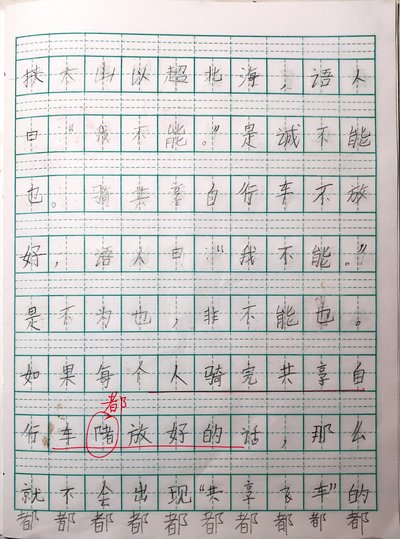 挟太山以超北海，语人
曰“我不能。”是诚不能
也。骑共享自行车不放
好，语人曰“我不能。”
是不为也，非不能也。
如果每个人骑完共享自
都
行车陼放好的话，那么
就不会出现“共享车”的
都都都都都都都都都都